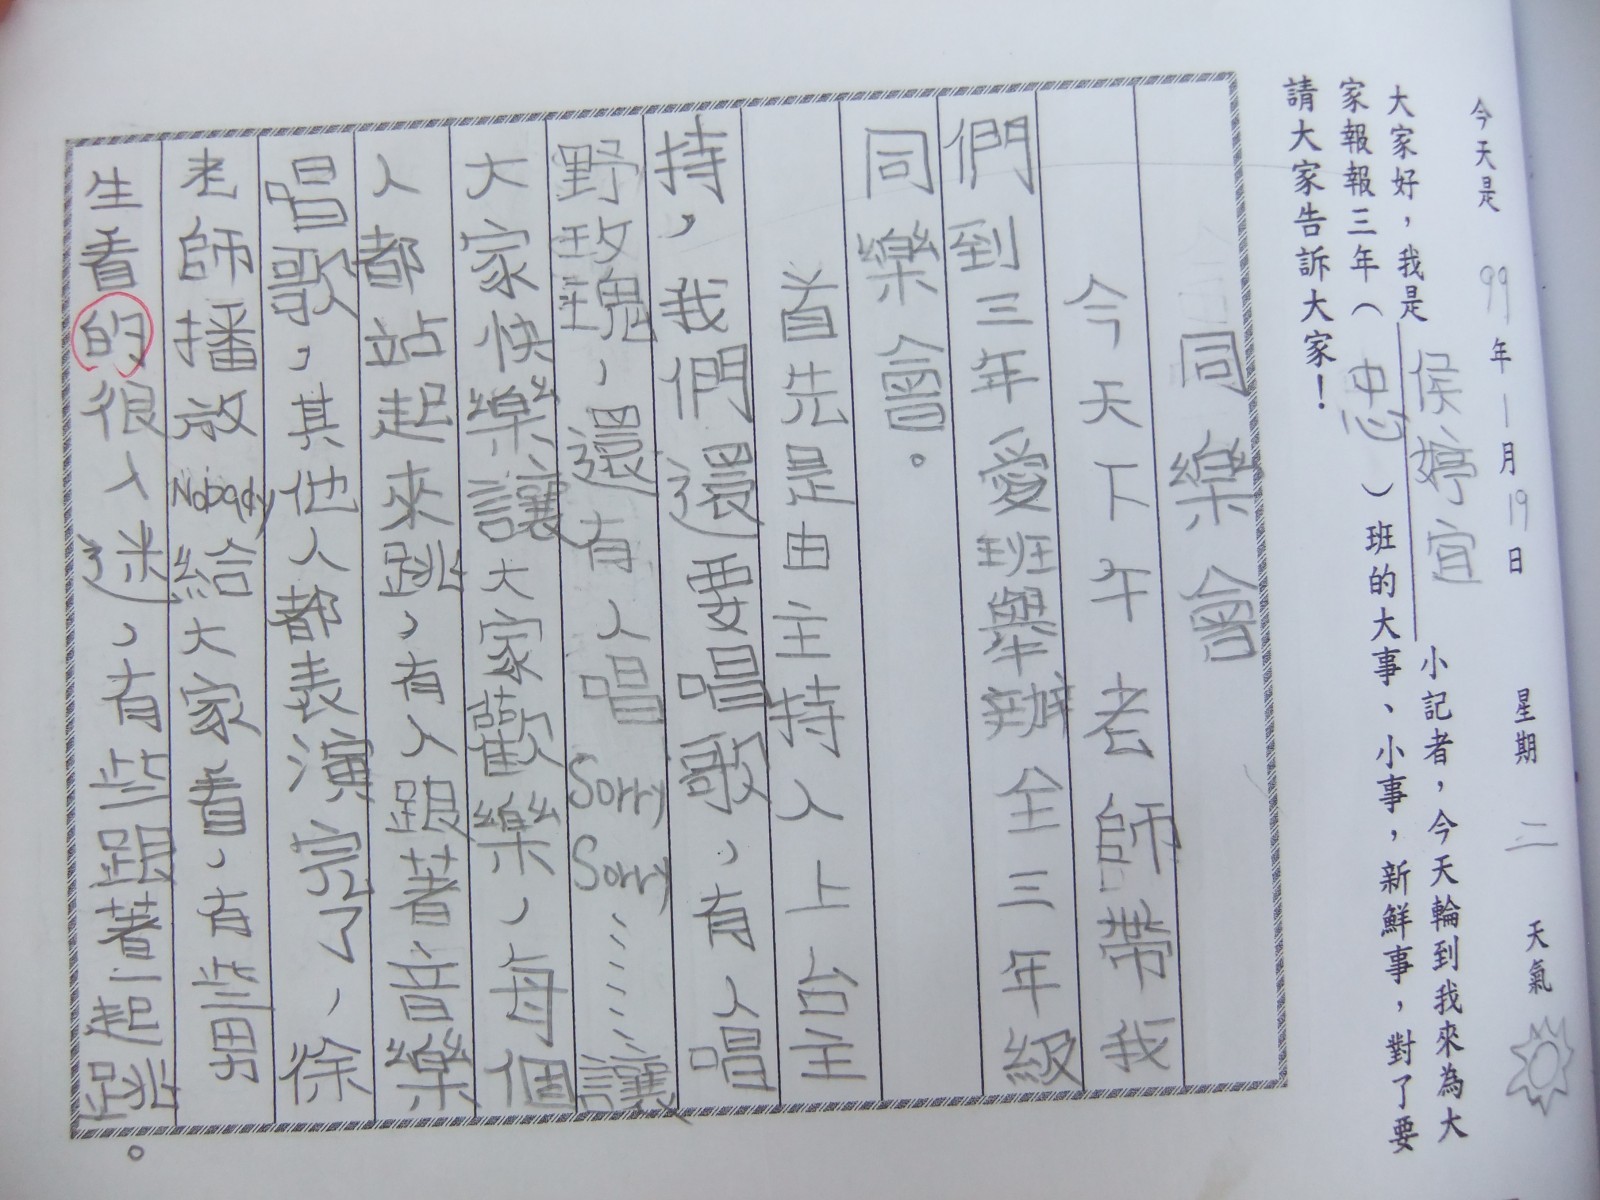 今天是 99 年 1 月 19 日 星期 二 天氣
大家好，我是 侯婷宜 小記者，今天輪到我來為大
家報報三年（ 忠 ）班的大事、小事，新鮮事，對了要
請大家告訴大家！
同樂會
今天下午老師帶我
們到三年愛班舉辦全三年級
同樂會。
首先是由主持人上台主
持，我們還要唱歌，有人唱
野玫瑰，還有人唱Sorry Sorry……讓
大家快樂讓大家歡樂，每個
人都站起來跳，有人跟著音樂
唱歌，其他人都表演完了，徐
老師播放Nobody給大家看，有些男
生看的很入迷，有些跟著一起跳。